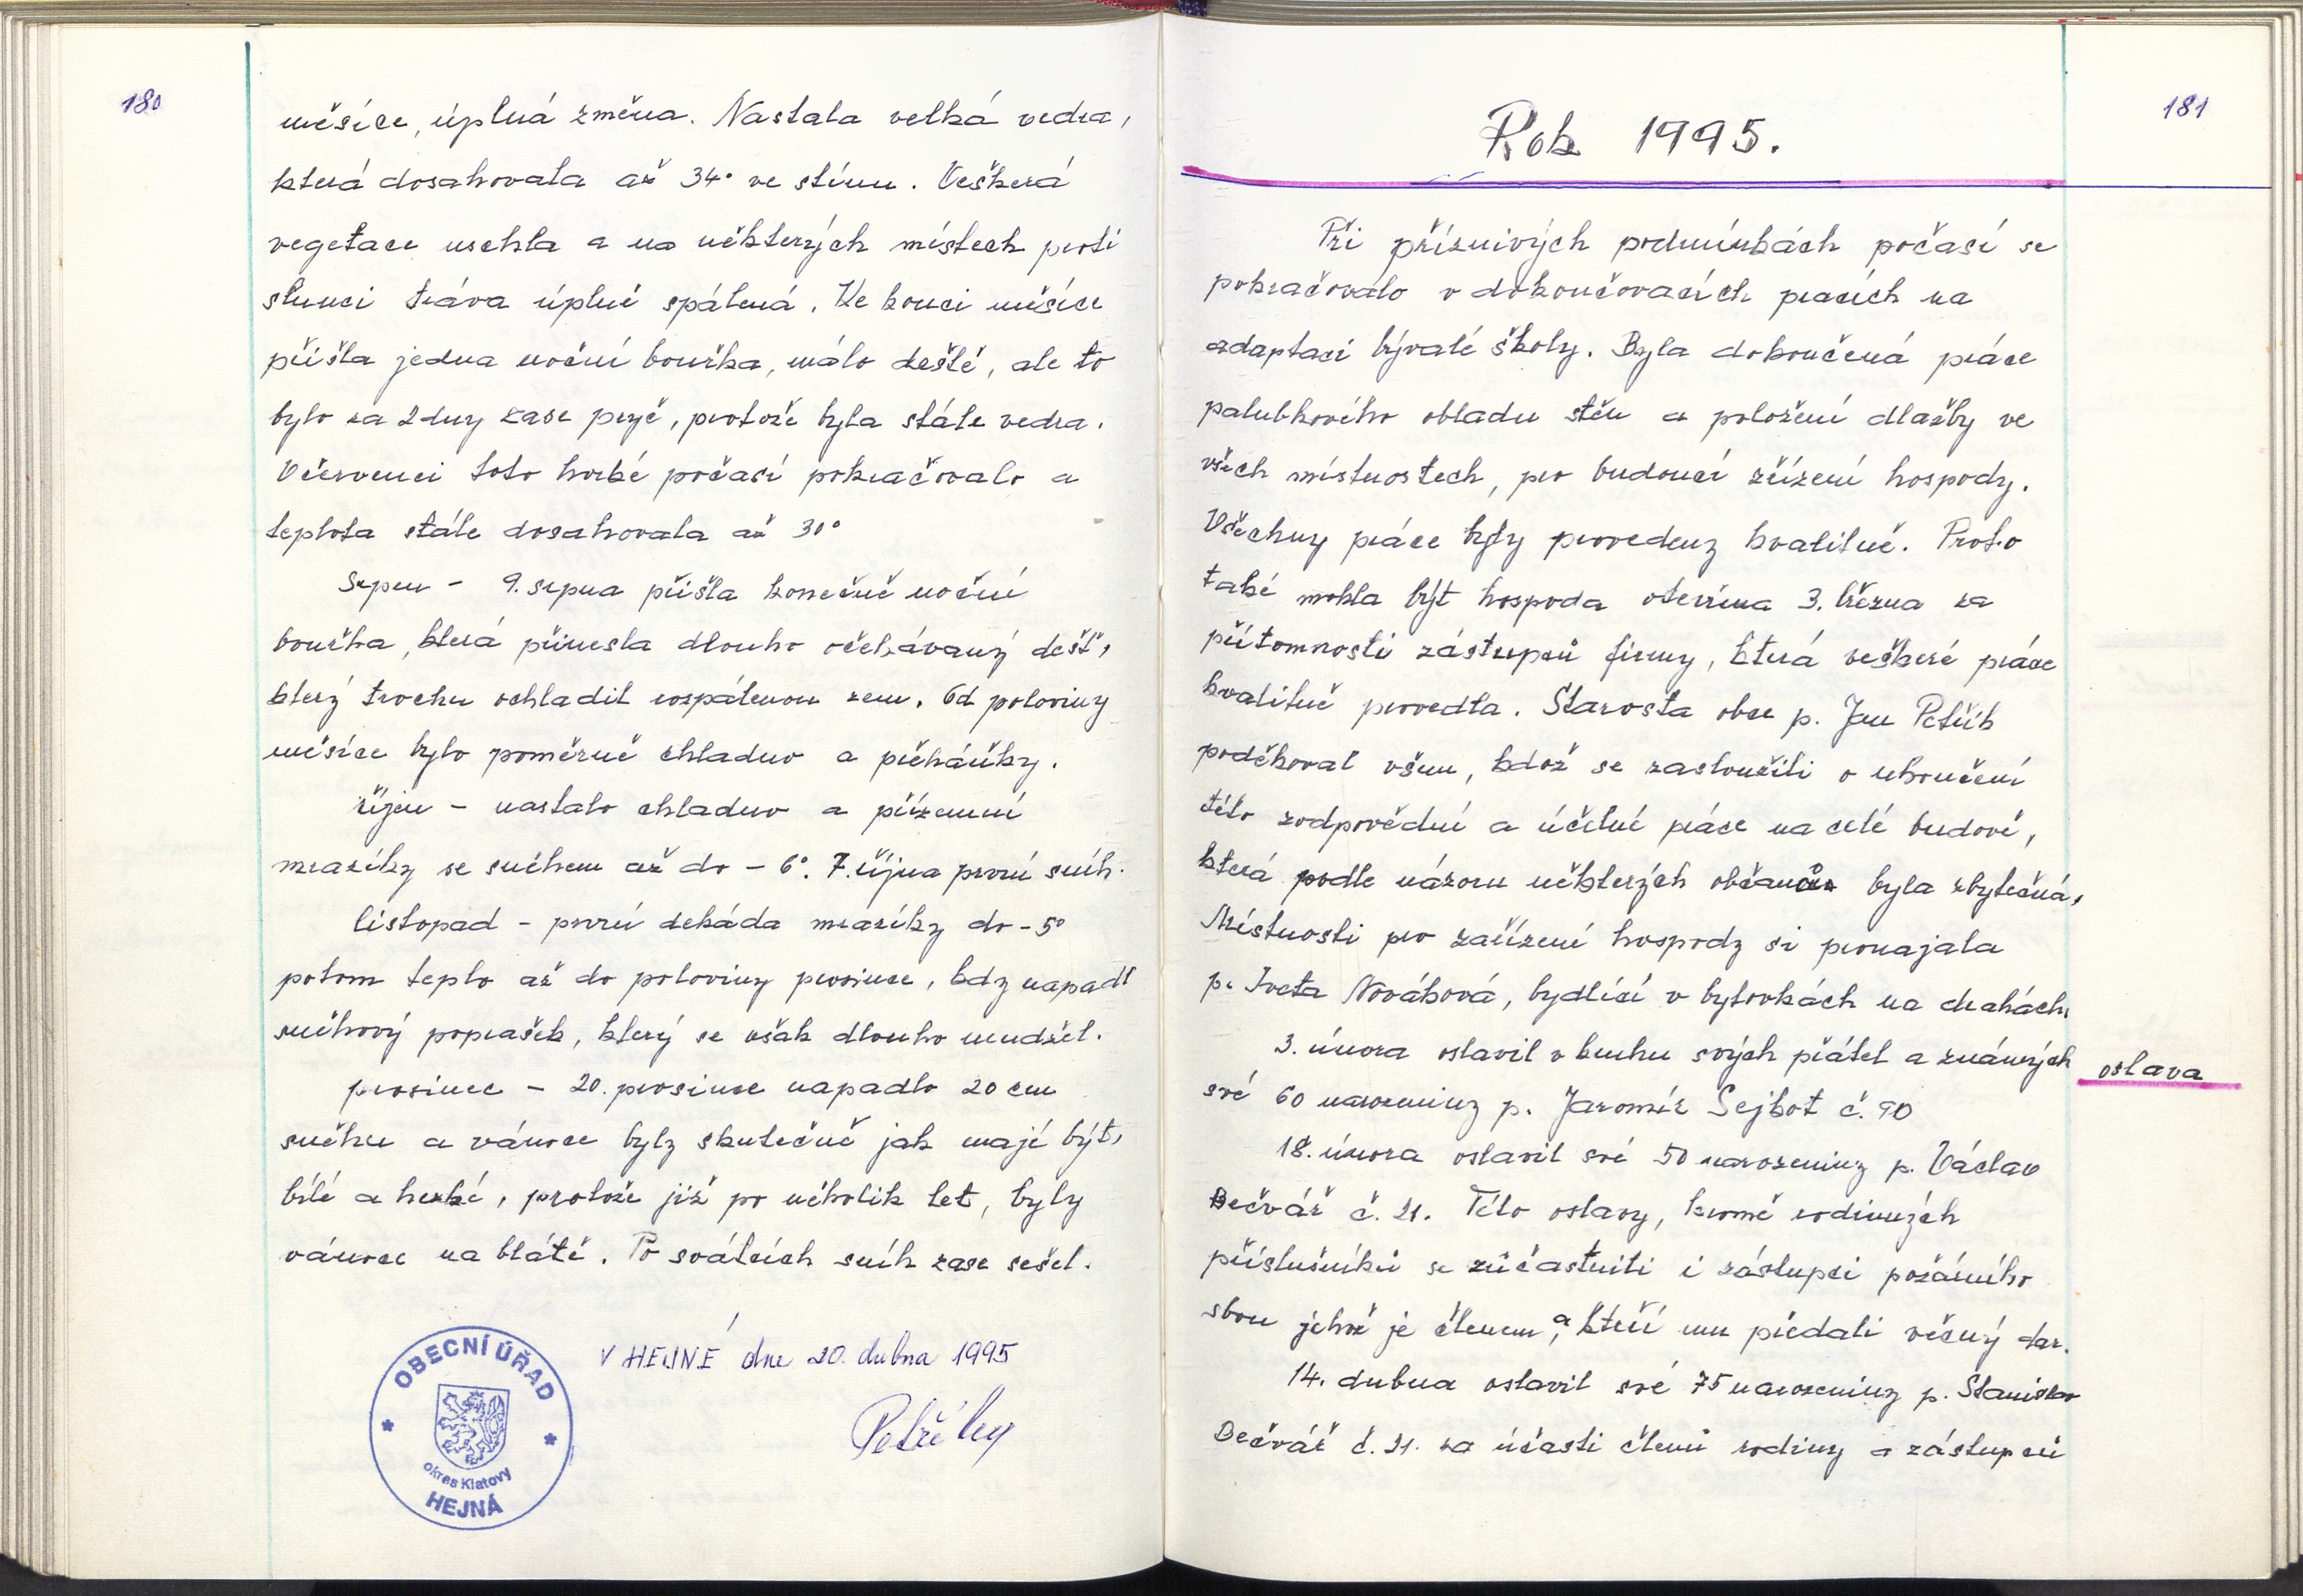 180
měsíce, úplná změna. Nastala velká vedra,
která dosahovala až 34° ve stínu. Veškerá
vegetace uschla a na některých místech proti
slunci tráva úplně spálená. Ke konci měsíce
přišla jedna noční bouřka, málo deště, ale to
bylo za 2 dny zase pryč, protože byla stále vedra.
V červenci toto horké počasí pokračovalo a
teplota stále dosahovala až 30°
Srpen - 9. srpna přišla konečně noční
bouřka, která přinesla dlouho očekávaný déšť,
který trochu ochladil rozpálenou zem. Od poloviny
měsíce bylo poměrně chladno a přeháňky.
říjen - nastalo chladno a přízemní
mrazíky se sněhem až do - 6°. 7. října první sníh.
listopad - první dekáda mrazíky do - 5°
potom teplo až do poloviny prosince, kdy napadl
sněhový poprašek, který se však dlouho neudržel.
prosinec - 20. prosince napadlo 20 cm
sněhu a vánoce byly skutečně jak mají být,
bílé a hezké, protože již po několik let, byly
vánoce na blátě. Po svátcích sníh zase sešel.
V HEJNÉ dne 20. dubna 1995
Petřík
OBECNÍ ÚŘAD
okres Klatovy
HEJNÁ
181
Rok 1995.
Při příznivých podmínkách počasí se
pokračovalo v dokončovacích pracích na
adaptaci bývalé školy. Byla dokončená práce
palubkového obladu stěn a položení dlažby ve
všech místnostech, pro budoucí zřízení hospody.
Všechny práce byly provedeny kvalitně. Proto
také mohla být hospoda otevřena 3. března za
přítomnosti zástupců firmy, která veškeré práce
kvalitně provedla. Starosta obce p. Jan Petřík
poděkoval všem, kdož se zasloužili o ukončení
této zodpovědné a účelné práce na celé budově,
která podle názoru některých občanů byla zbytečná,
Místnosti pro zařízení hospody si pronajala
p. Iveta Nováková, bydlící v bytovkách na drahách.
3. února oslavil v kruhu svých přátel a známých
oslava
své 60 narozeniny p. Jaromír Sejbot č. 90
18. února oslavil své 50 narozeniny p. Václav
Bečvář č. 21. Této oslavy, kromě rodinných
příslušníků se zůčastnili i zástupci požárního
sboru jehož je členem, a kteří mu předali věcný dar.
14. dubna oslavil své 75 narozeniny p. Stanislav
Bečvář č. 21. za účasti členů rodiny a zástupců